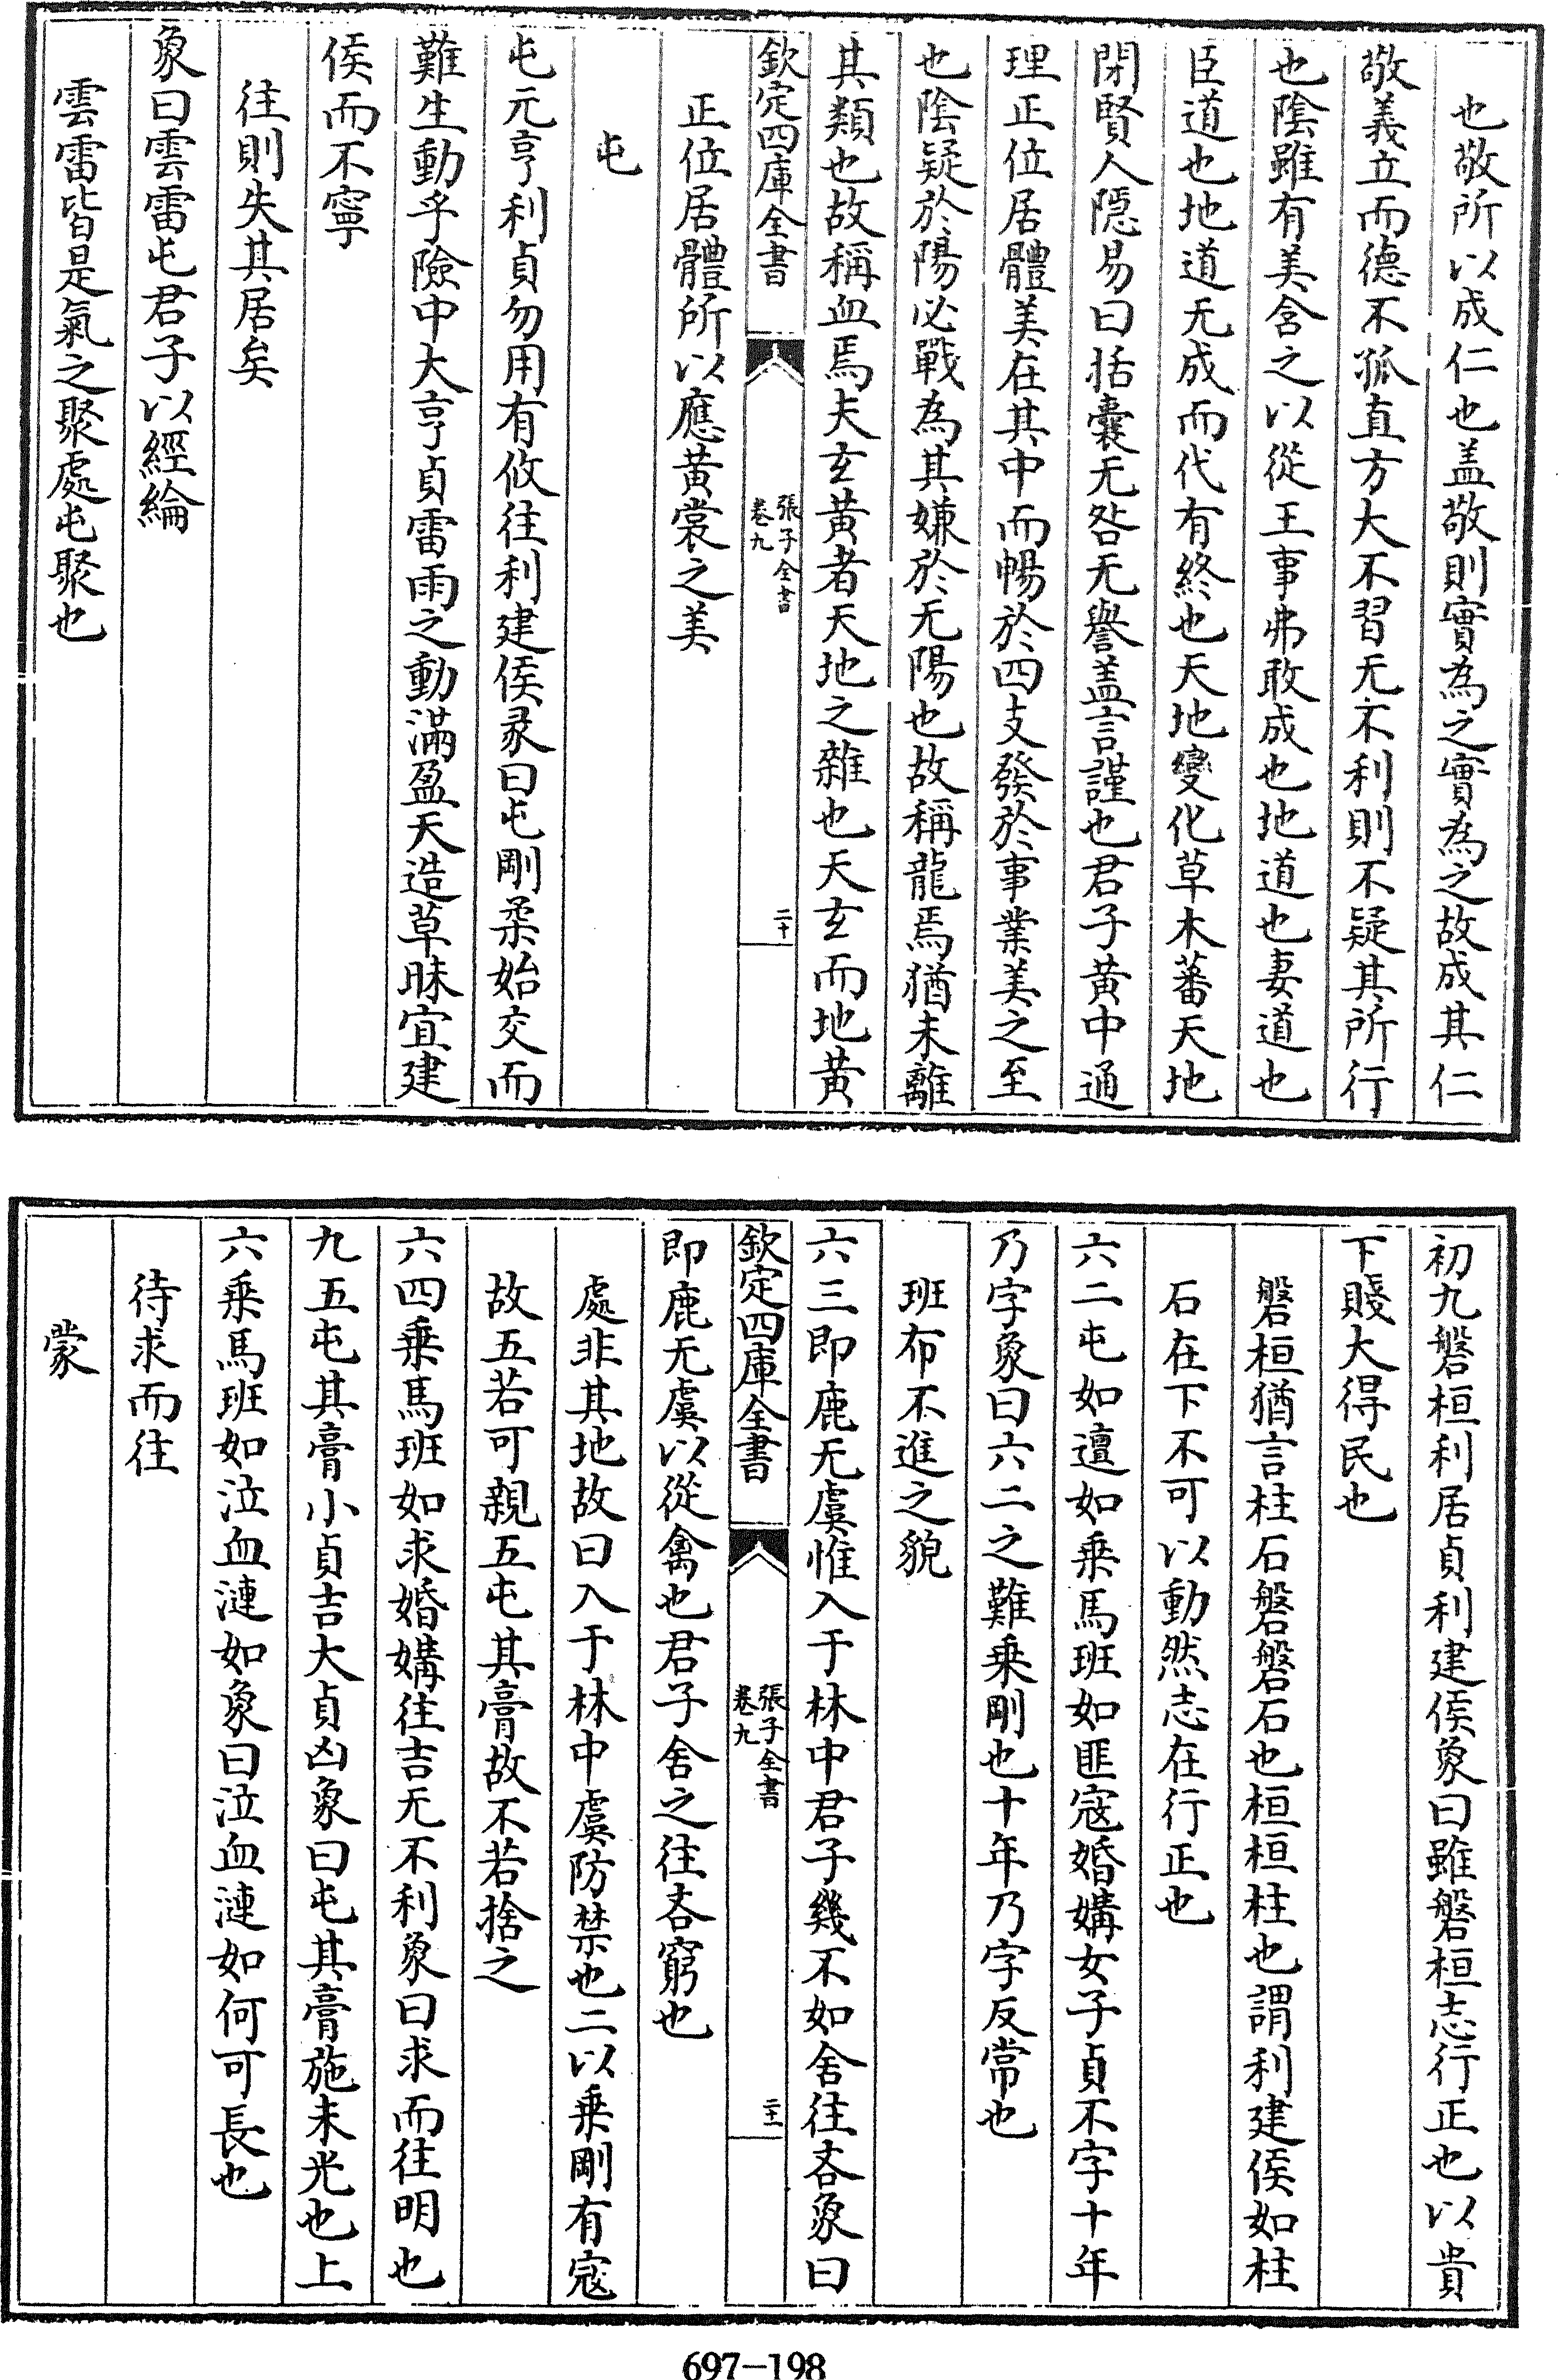 也敬所以成仁也盖敬則實為之實為之故成其仁
敬義立而德不孤直方大不習无不利則不疑其所行
也陰雖有美含之以從王事弗敢成也地道也妻道也
臣道也地道无成而代有終也天地變化草木蕃天地
閉賢人隱易曰括囊无咎无譽盖言謹也君子黃中通
理正位居體美在其中而暢於四支發於事業美之至
也陰疑於陽必戰為其嫌於无陽也故稱龍焉猶未離
其類也故稱血焉夫玄黃者天地之雜也天玄而地黃
欽定四庫全書
張子全書
卷九
二十
正位居體所以應黃裳之美
屯
屯元亨利貞勿用有攸往利建侯彖曰屯剛柔始交而
難生動乎險中大亨貞雷雨之動滿盈天造草昧宜建
侯而不寧
往則失其居矣
象曰雲雷屯君子以經綸
雲雷皆是氣之聚處屯聚也
初九磐桓利居貞利建侯象曰雖磐桓志行正也以貴
下賤大得民也
磐桓猶言柱石磐磐石也桓桓柱也謂利建侯如柱
石在下不可以動然志在行正也
六二屯如邅如乘馬班如匪寇婚媾女子貞不字十年
乃字象曰六二之難乘剛也十年乃字反常也
班布不進之貌
六三即鹿无虞惟入于林中君子幾不如舍往吝象曰
欽定四庫全書
張子全書
卷九
二十一
即鹿无虞以從禽也君子舍之往吝窮也
處非其地故曰入于林中虞防禁也二以乘剛有寇
故五若可親五屯其膏故不若捨之
六四乘馬班如求婚媾往吉无不利象曰求而往明也
九五屯其膏小貞吉大貞凶象曰屯其膏施未光也上
六乘馬班如泣血漣如象曰泣血漣如何可長也
待求而往
蒙
697-198